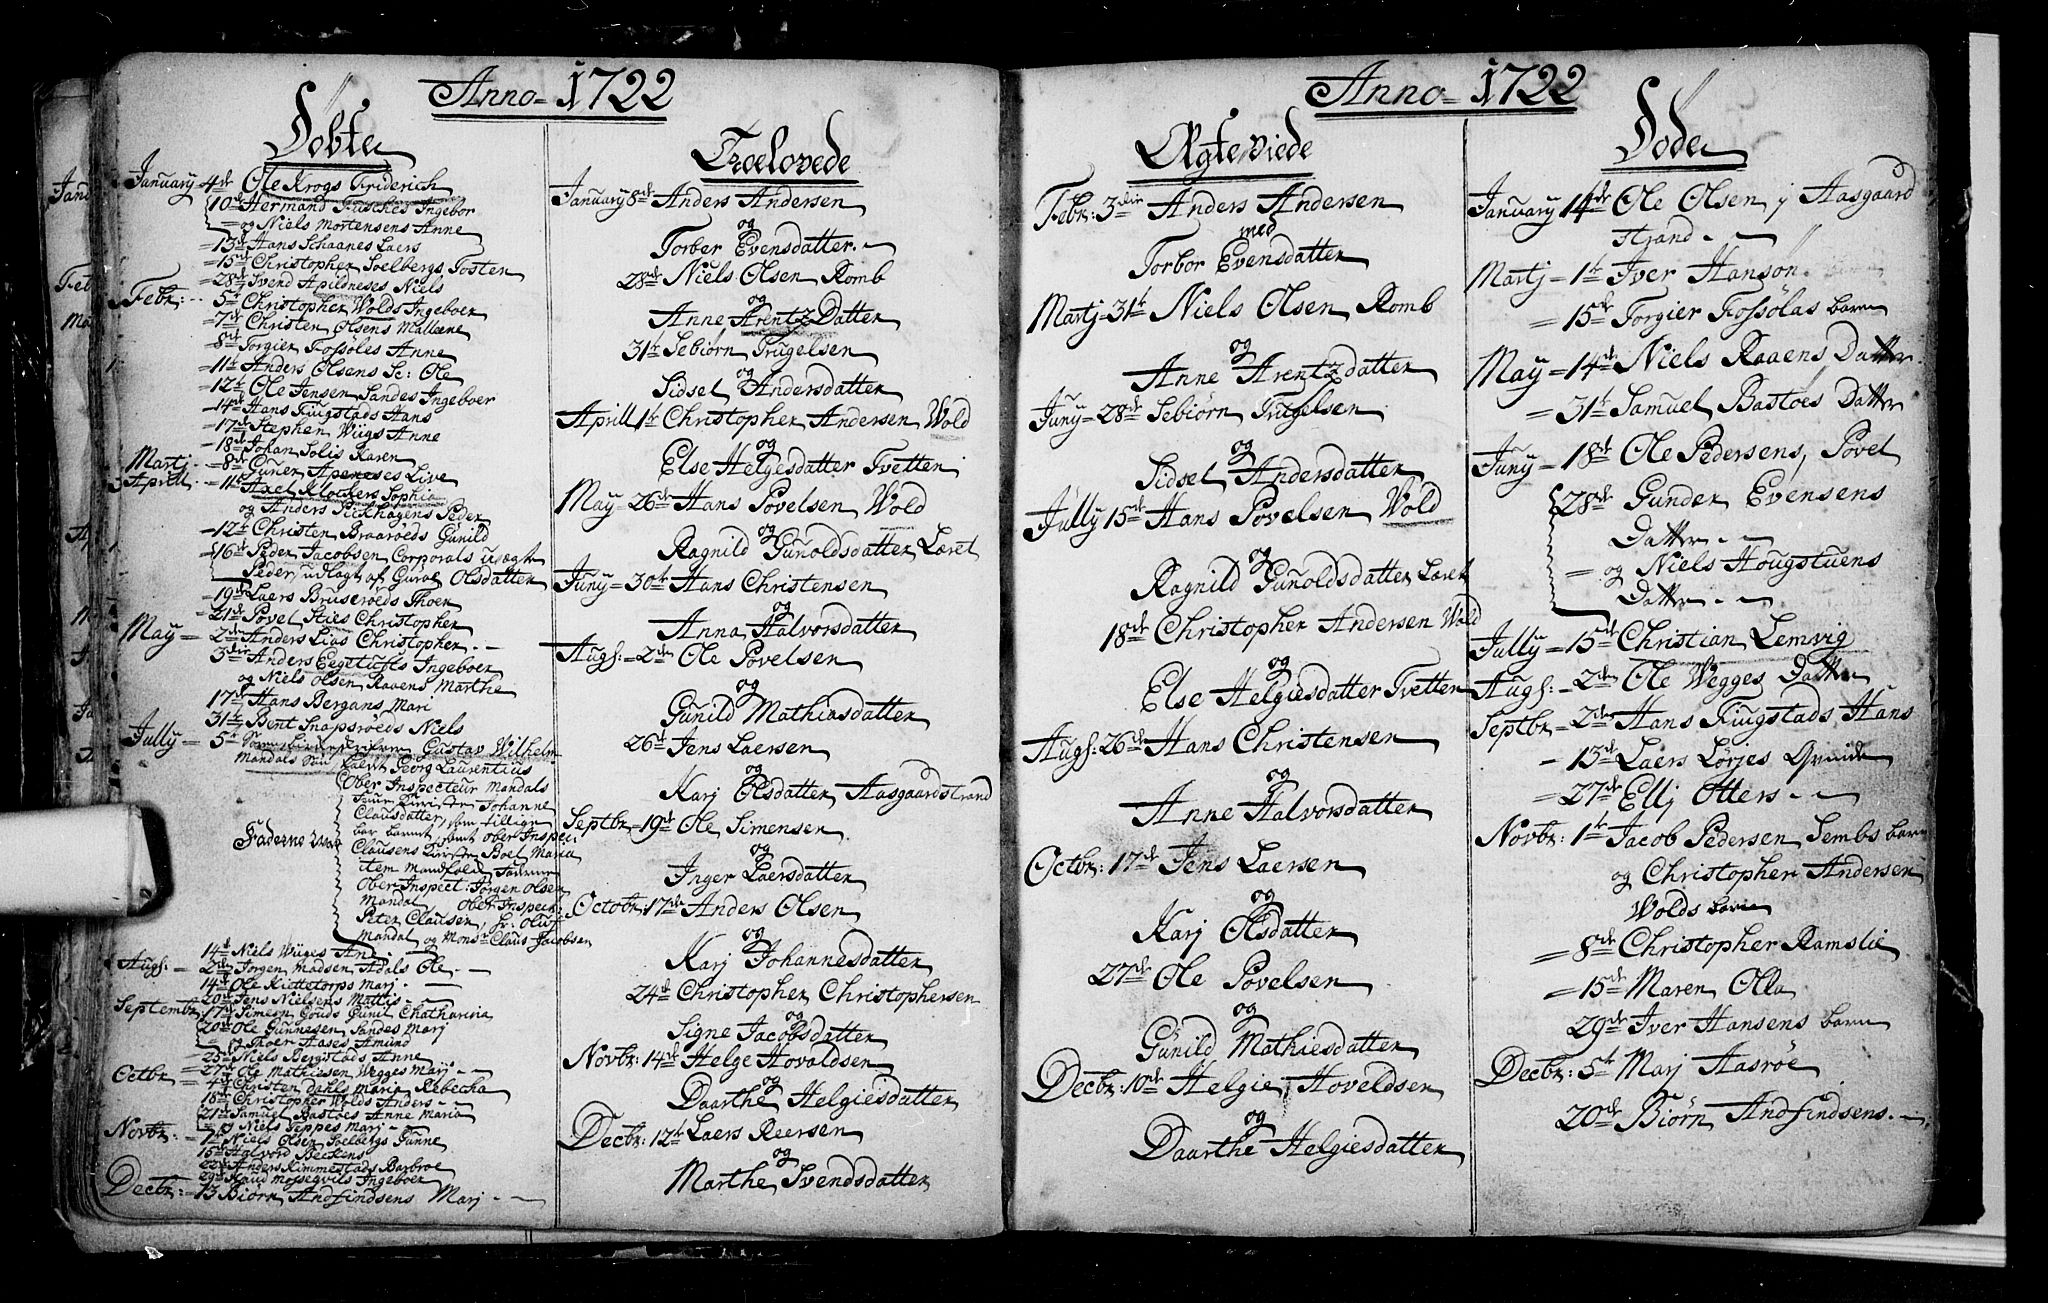 Anno 1722
Døbte
January 4de Ole Krogs Friderich
10de Hermand Fusches Ingebor
og Niels Mortensens Anne
13de Hans Schaanes Laers
15de Christopher Soelbergs Tosten
28de Svend Apildneses Niels
Febr: 5te Christopher Wolds Ingeboer
7de Christen Olsens Malleene
8de Torgier Fossøles Anne
11te Anders Olsens Ole
12te Ole Jensen Sandes Ingeboer
14de Hans Fuugstads Hans
17de Stephen Wiigs Anne
18de Johan Solis Karen
Martj 8de Guner Apeneses Live
Aprill 11te Axel Klockers Sophia
og Anders Pickhagens Peder
12te Christen Braarøds Gunild
16de Peder Jacobsen Corporals uægte
Peder, udlagt af Guroe Olsdatter
19de Laers Bruserøds Thoer
21de Povel Sties Christopher
May 2den Anders Lias Christopher
3die Anders Eegetufts Ingeboer
og Niels Olsen Raaens Marthe
17de Hans Bergans Mari
31te Bent Snapsrøeds Niels
Jully 5te Gustav Wilhelm
Mandals Søn kaldt Georg Laurentius
Fadderne vare
Ober Inspecteur Mandals
Johanne
Clausdatter, som tillige
bar barnet, samt ober Inspec:
Clausens Boel Maria
item Mandfolk
Ober Inspect: Jørgen Olsen
Mandal, ober Inspect:
Peter Clausen, Sr: Oluf
Mandal, og Monsr Claus Jacobsen
14de Niels Wiiges Ane
Augs: 2den Jørgen Madsen Adals Ole
14de Ole Kiettetorps Marj
20de Jens Nielsens Mattis
Septembr: 17de Simeon Gouds Gunil Chatharina
20de Ole Gunnesen Sandes Marj
og Thoer Aases Amund
25de Niels Bergstads Anne
27de Ole Mathiesen Wegges Marj
Octbr: 4de Christen Dahls Maria Rebecha
18de Christopher Wolds Anders
21de Samuel Bastøes Anne Maria
og Niels Teppes Marj
Novbr: 1te Niels Olsen Soelbergs Gunne
15de Halvord Beckens
22de Anders Rimmestads Barbroe
29de Knud Ingeboer
Decbr: 13 Biørn Andfindsens Marj
Troelovede
January 8de Anders Andersen
og
Torber Evensdatter
28de Niels Olsen Romb
og
Anne Arentz Datter
31te Sebiørn Trugelsen
og
Sidsel Andersdatter
Aprill 1te Christopher Andersen Wold
og
Else Helgesdatter Tvetten
May 26de Hans Povelsen Wold
og
Ragnild Gunoldsdatter Læret
Juny 30te Hans Christensen
og
Anna Halvorsdatter
Augs: 2de Ole Povelsen
og
Gunild Mathiasdatter
26te Jens Laersen
og
Karj Olsdatter Aasgaardstrand
Septbr 19de Ole Simensen
og
Inger Laersdatter
Octobr: 17de Anders Olsen
og
Karj Johannesdatter
24de Christopher Christophersen
og
Signe Jacobsdatter
Novbr: 14de Helge Hovaldsen
og
Daarthe Helgiesdatter
Decbr: 12te Laers Reersen
og
Marthe Svendsdatter
Anno 1722
Ægteviede
Febr: 3die Anders Andersen
med
Torbor Evensdatter
Martj 31te Niels Olsen Romb
og
Anne Arentzdatter
Juny 28de Sebiørn Trugelsen
og
Sidsel Andersdatter
Jully 15de Hans Povelsen Wold
og
Ragnild Gunoldsdatter Læret
18de Christopher Andersen Wold
og
Else Helgiesdatter Tvetten
Augs: 26de Hans Christensen
og
Anne Halvorsdatter
Octbr: 17de Jens Laersen
og
Karj Olsdatter
27de Ole Povelsen
og
Gunild Mathiesdatter
Decbr: 10de Helgie Hoveldsen
og
Daarthe Helgiesdatter
Døde
January 14de Ole Olsen j Aasgaard
strand
Martj 1te Iver Hanson
15de Torgier Fossølas barn
May 14de Niels Raaens Datter
31te Samuel Bastøes Datter
Juny 18de Ole Pedersens, Povel
28de Gunder Evensens
Datter
og Niels Hougstuens
Datter
Jully 15de Christian Lemvig
Augs: 2den Ole Wegges Datter
Septbr 2den Hans Fuugstads Hans
13de Laers Lørjes Qvinde
27de Ellj Otters
Novbr: 1te Jacob Pedersen Sembs barn
og Christopher Andersen
Wolds barn
8de Christopher Ramslie
15de Maren Olla
29de Iver Hansens barn
Decbr: 5te Marj Aasrøe
20de Biørn Andfindsens